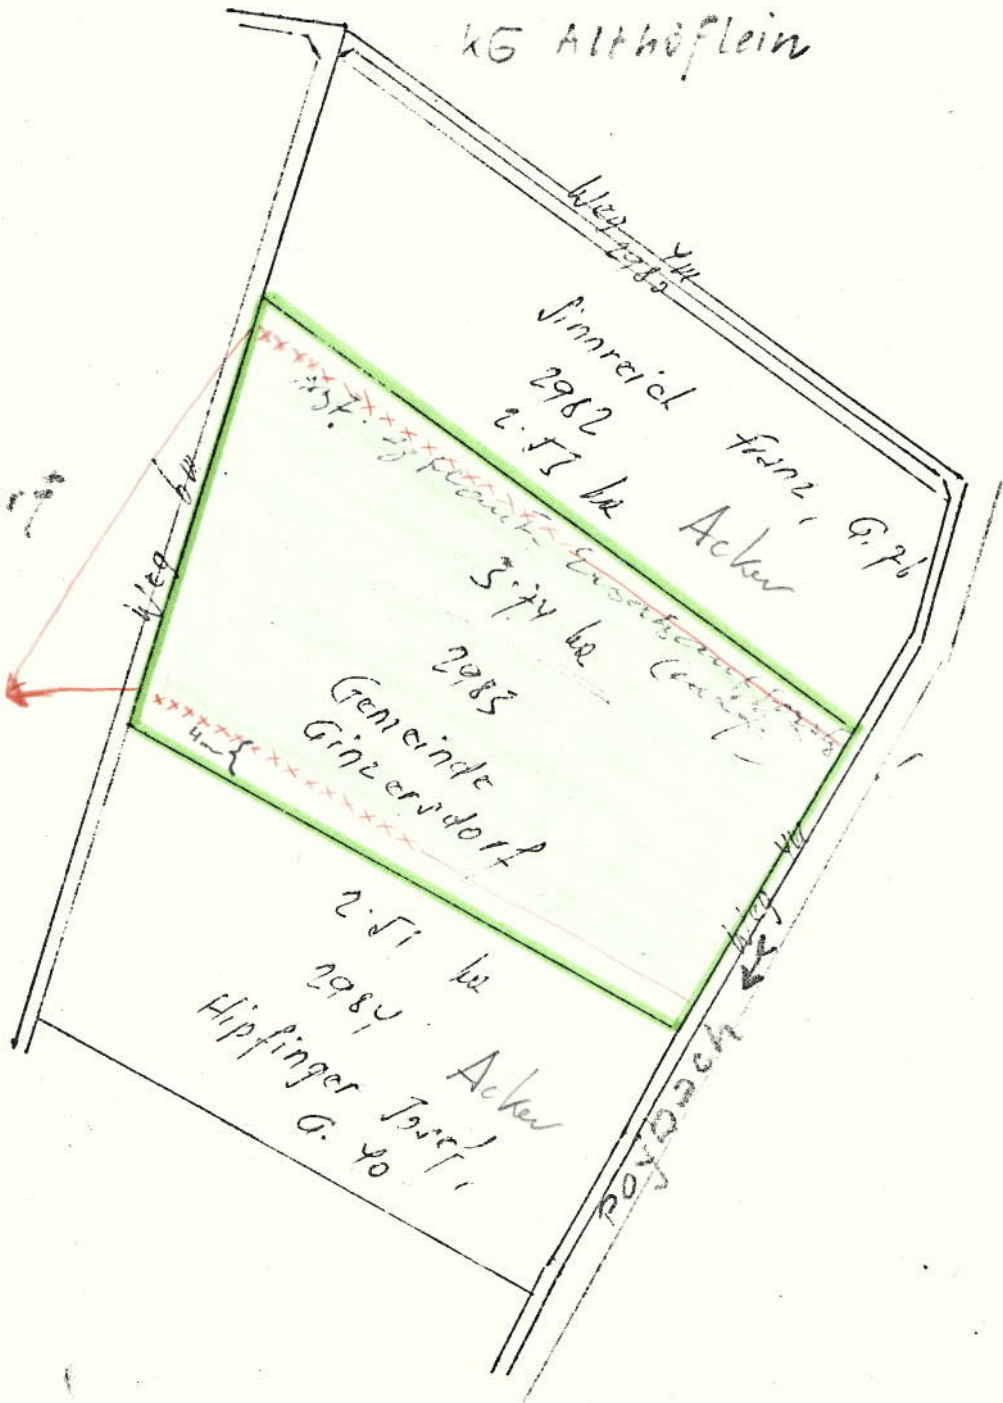 KG Althöflein
Weg 4m
2982
Sinnreich Franz, G. 76
2982
2.53 ha
Acker
Weg 6m
3.74 ha
2983
Gemeinde
Ginzersdorf
4m
Weg 4m
2.51 ha
2984
Acker
Hipfinger Josef,
G. 40
Poybach